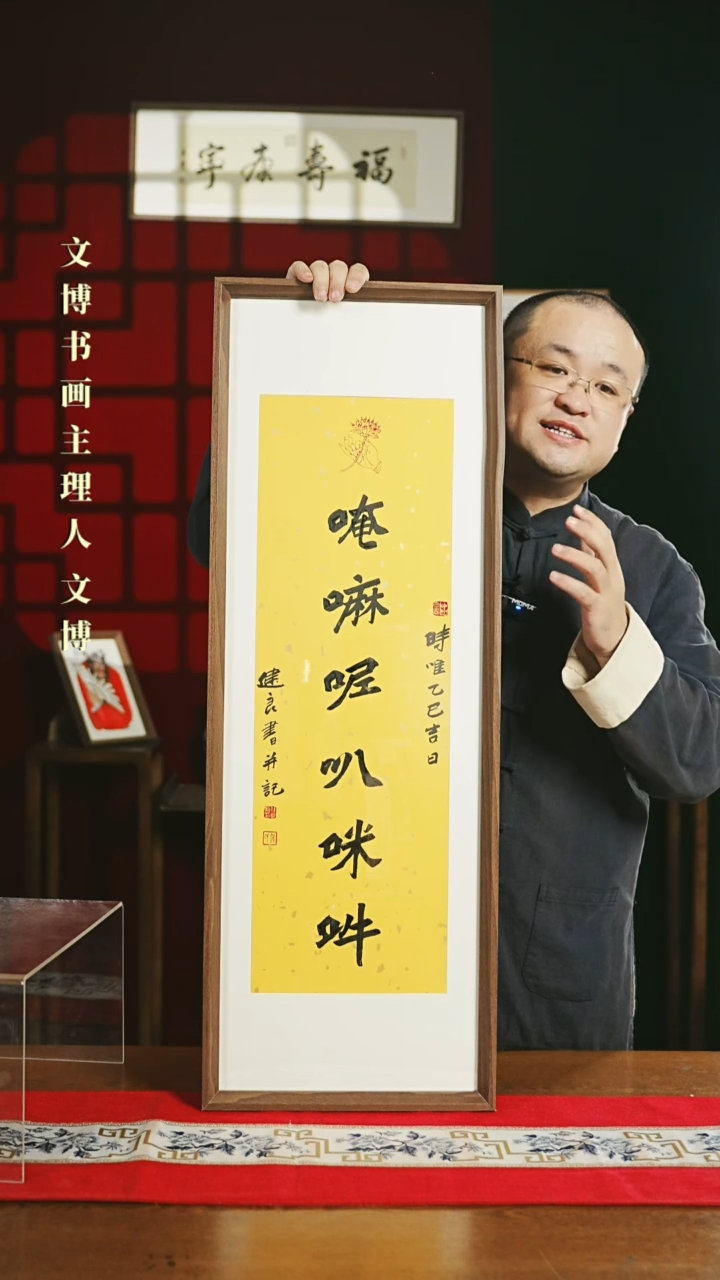 福壽康寧
文博书画主理人 文博
時唯乙巳吉日
唵嘛呢叭咪吽
健良書并記